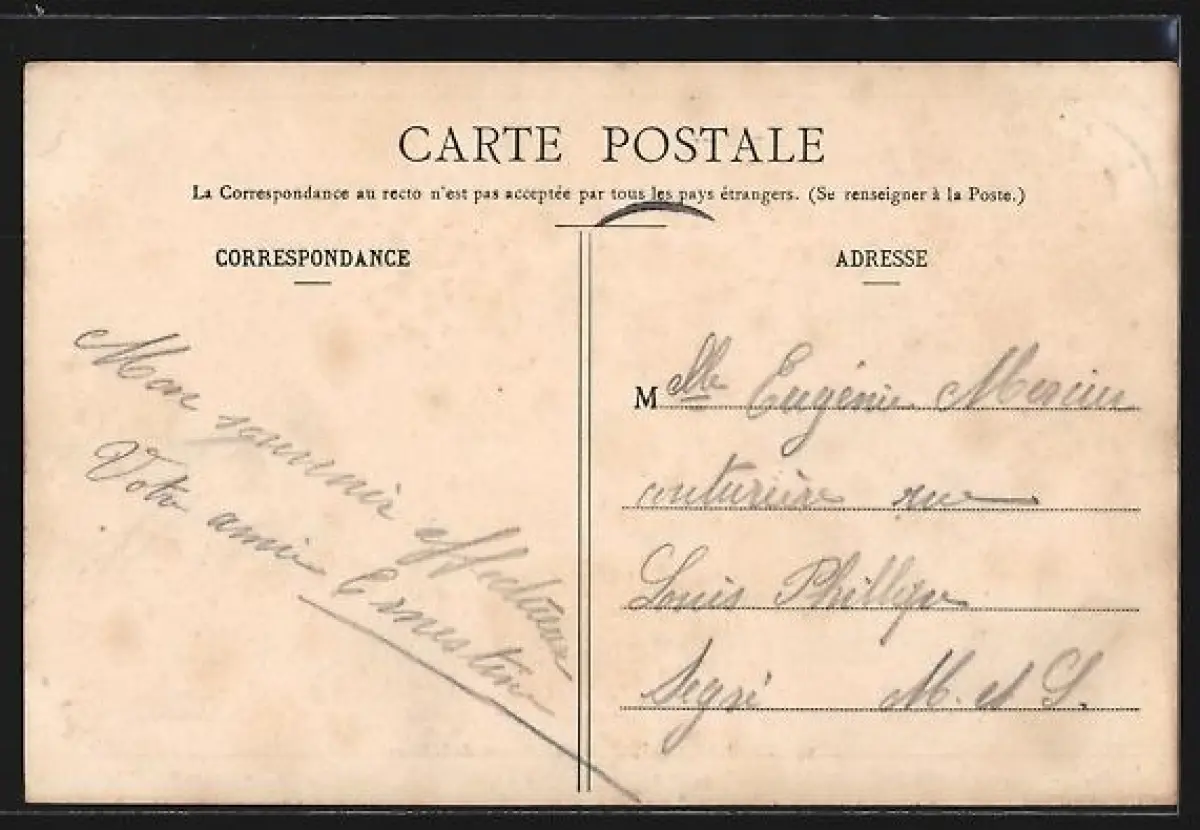 CARTE POSTALE
La Correspondance au recto n'est pas acceptée par tous les pays étrangers. (Se renseigner à la Poste.)
CORRESPONDANCE
Mon souvenir affectueux
Votre amie Ernestine
ADRESSE
Mlle Eugénie Mercier
couturière rue
Louis Phillipe
Segré M. et L.